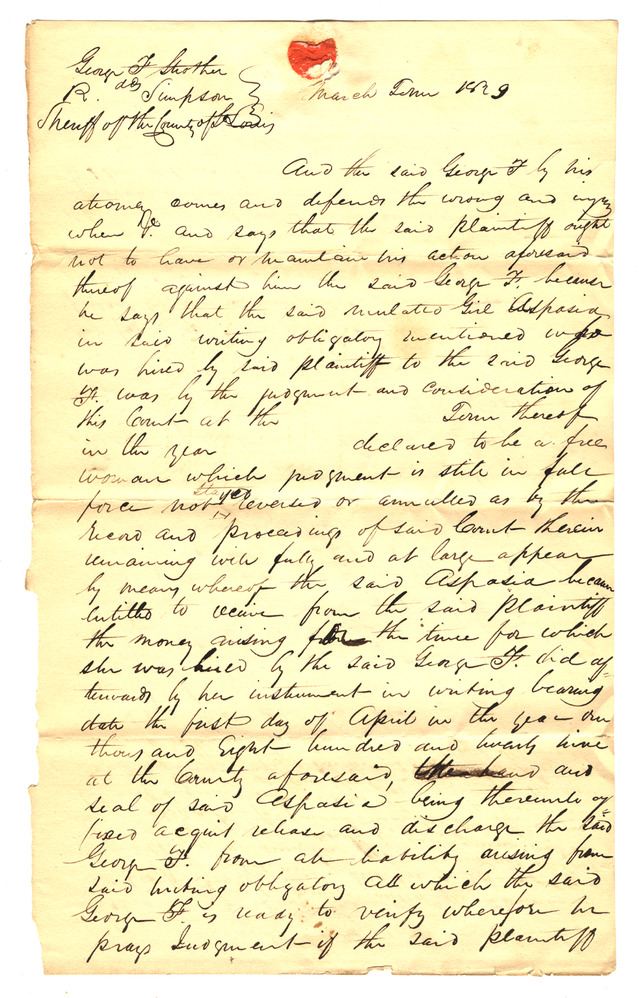 George F Strother
ads
R. Simpson
Sheriff of the County of St Louis
March Term 1829
And the said George F by his
attorney comes and defends the wrong and injury
when &c. and says that the said plaintiff ought
not to have or maintain his action aforesaid
thereof against him the said George F. because
he says that the said mulatto Girl Aspasia
in said writing obligatory mentioned
was hired by said plaintiff to the said George
F. was by the judgment and consideration of
this Court at the Term thereof
in the year declared to be a free
woman which judgment is still in full
stayed
force not reversed or annulled as by the
record and proceedings of said Court therein
remaining will fully and at large appear
by means whereof the said Aspasia became
entitled to receive from the said plaintiff
the money arising for the time for which
she was hired by the said George F. did af
terwards by her instrument in writing bearing
date the first day of April in the year one
thousand Eight hundred and twenty nine
at the County aforesaid, the hand and
seal of said Aspasia being thereunto af
fixed acquit release and discharge the said
George F. from all liability arising from
said writing obligatory all which the said
George F. is ready to verify wherefore he
prays Judgment if the said plaintiff